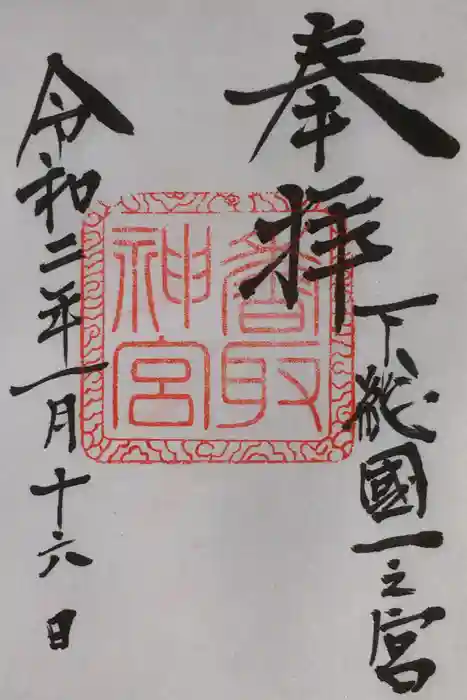 奉拝
下総國一之宮
香取
神宮
令和二年一月十六日